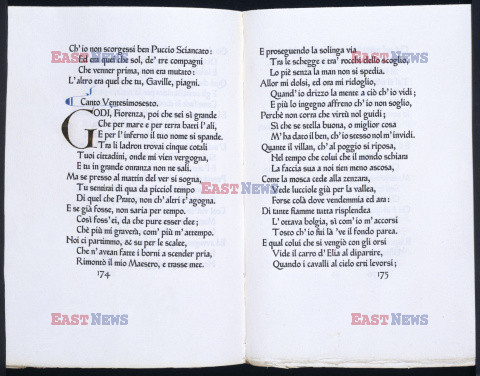 Ch'io non scorgessi ben Puccio Sciancato:
Ed era quel che sol, de' tre compagni
Che venner prima, non era mutato:
L'altro era quel che tu, Gaville, piagni.
Canto Ventesimosesto.
GODI, Fiorenza, poi che sei sì grande
Che per mare e per terra batti l'ali,
E per l'inferno il tuo nome si spande.
Tra li ladron trovai cinque cotali
Tuoi cittadini, onde mi vien vergogna,
E tu in grande onranza non ne sali.
Ma se presso al mattin del ver si sogna,
Tu sentirai di qua da picciol tempo
Di quel che Prato, non ch'altri t'agogna.
E se già fosse, non saria per tempo.
Così foss'ei, da che pure esser dee;
Chè più mi graverà, com' più m'attempo.
Noi ci partimmo, & su per le scalee,
Che n'avean fatte i borni a scender pria,
Rimontò il mio Maestro, e trasse mee.
174
E proseguendo la solinga via
Tra le schegge e tra' rocchi dello scoglio,
Lo piè senza la man non si spedia.
Allor mi dolsi, ed ora mi ridoglio,
Quand'io drizzo la mente a ciò ch'io vidi;
E più lo ingegno affreno ch'io non soglio,
Perchè non corra che virtù nol guidi;
Sì che se stella buona, o miglior cosa
M'ha dato il ben, ch'io stesso nol m'invidi.
Quante il villan, ch'al poggio si riposa,
Nel tempo che colui che il mondo schiara
La faccia sua a noi tien meno ascosa,
Come la mosca cede alla zenzara,
Vede lucciole giù per la vallea,
Forse colà dove vendemmia ed ara:
Di tante fiamme tutta risplendea
L'ottava bolgia, sì com'io m'accorsi
Tosto ch'io fui là 've il fondo parea.
E qual colui che si vengiò con gli orsi
Vide il carro d'Elia al dipartire,
Quando i cavalli al cielo erti levorsi;
175
EAST NEWS
EAST NEWS
EAST NEWS
EAST NEWS
EAST NEWS
EAST NEWS